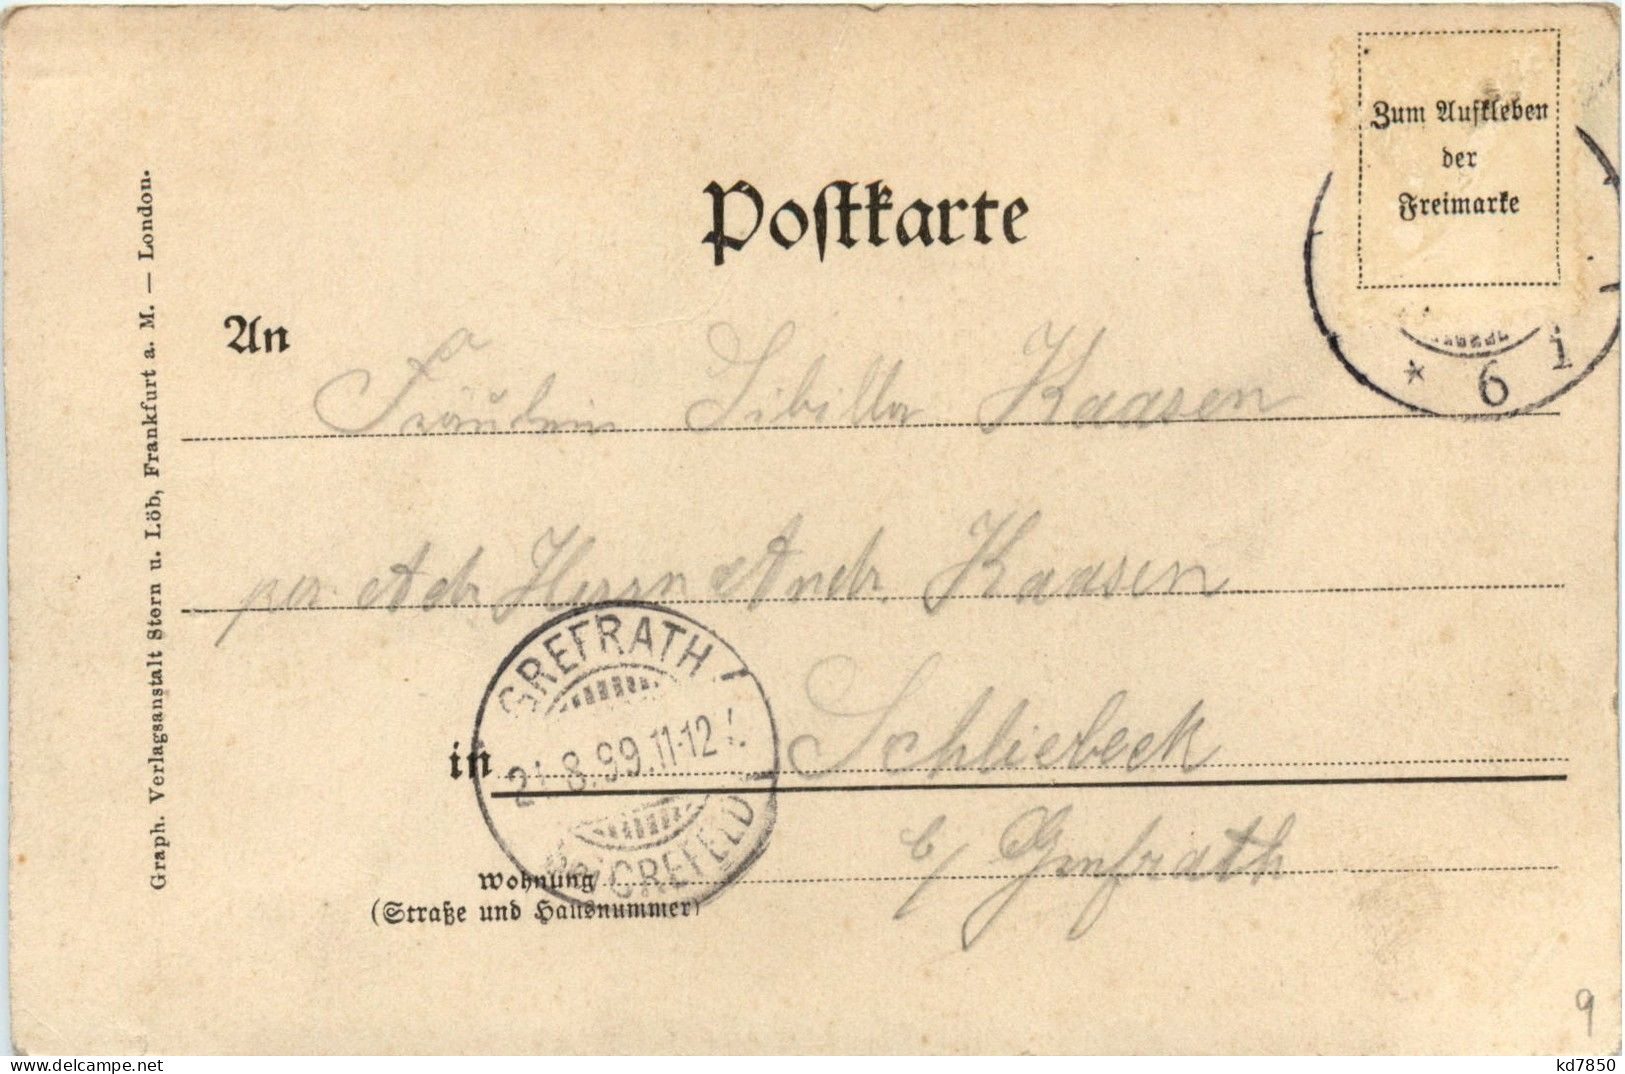 Zum Aufkleben
der
Freimarke
Postkarte
An
Fräulein Sibilla Kaasen
per Adr. Herrn Andr. Kaasen
in Schliebeck
b/ Grefrath
Wohnung
(Straße und Hausnummer)
GREFRATH
8.99.11-12
CREFELD
* 6 i
Graph. Verlagsanstalt Stern u. Löb, Frankfurt a. M. — London.
9
kd7850